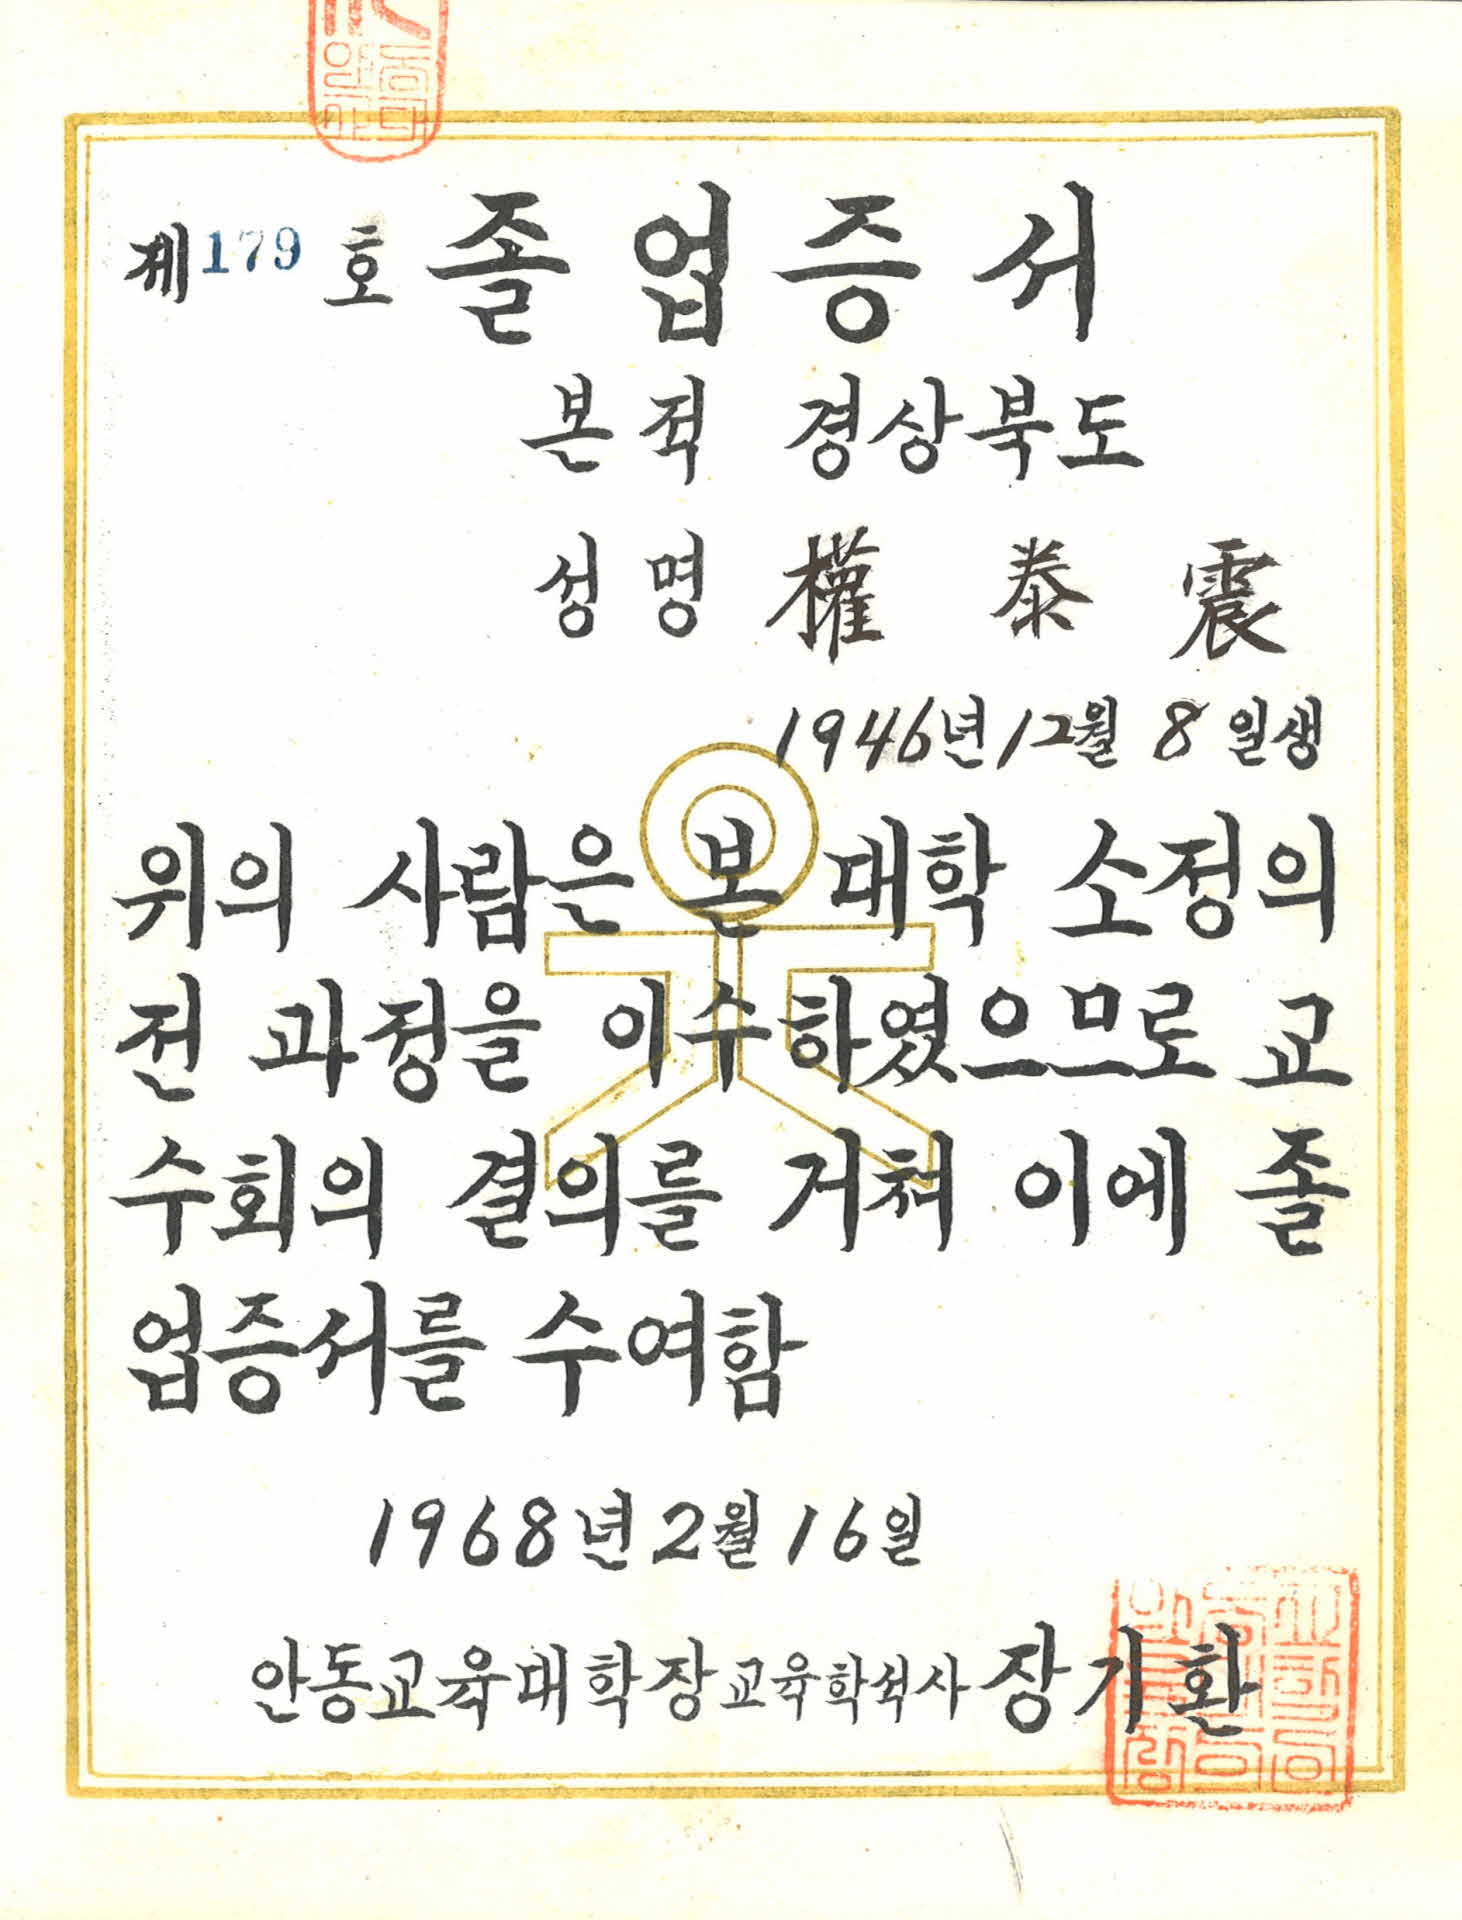 제179호 졸업증서
본적 경상북도
성명 權泰震
1946년 12월 8일생
위의 사람은 본 대학 소정의
전 과정을 이수하였으므로 교
수회의 결의를 거쳐 이에 졸
업증서를 수여함
1968년 2월 16일
안동교육대학장 교육학석사 장기환